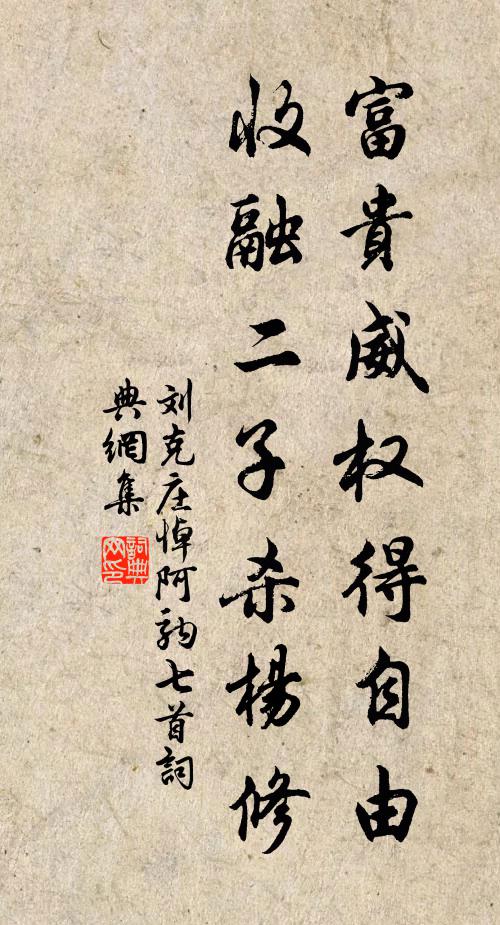 富貴威权得自由
收融二子杀楊修
刘克庄悼阿駒七首詞
典網集
詞典
网印